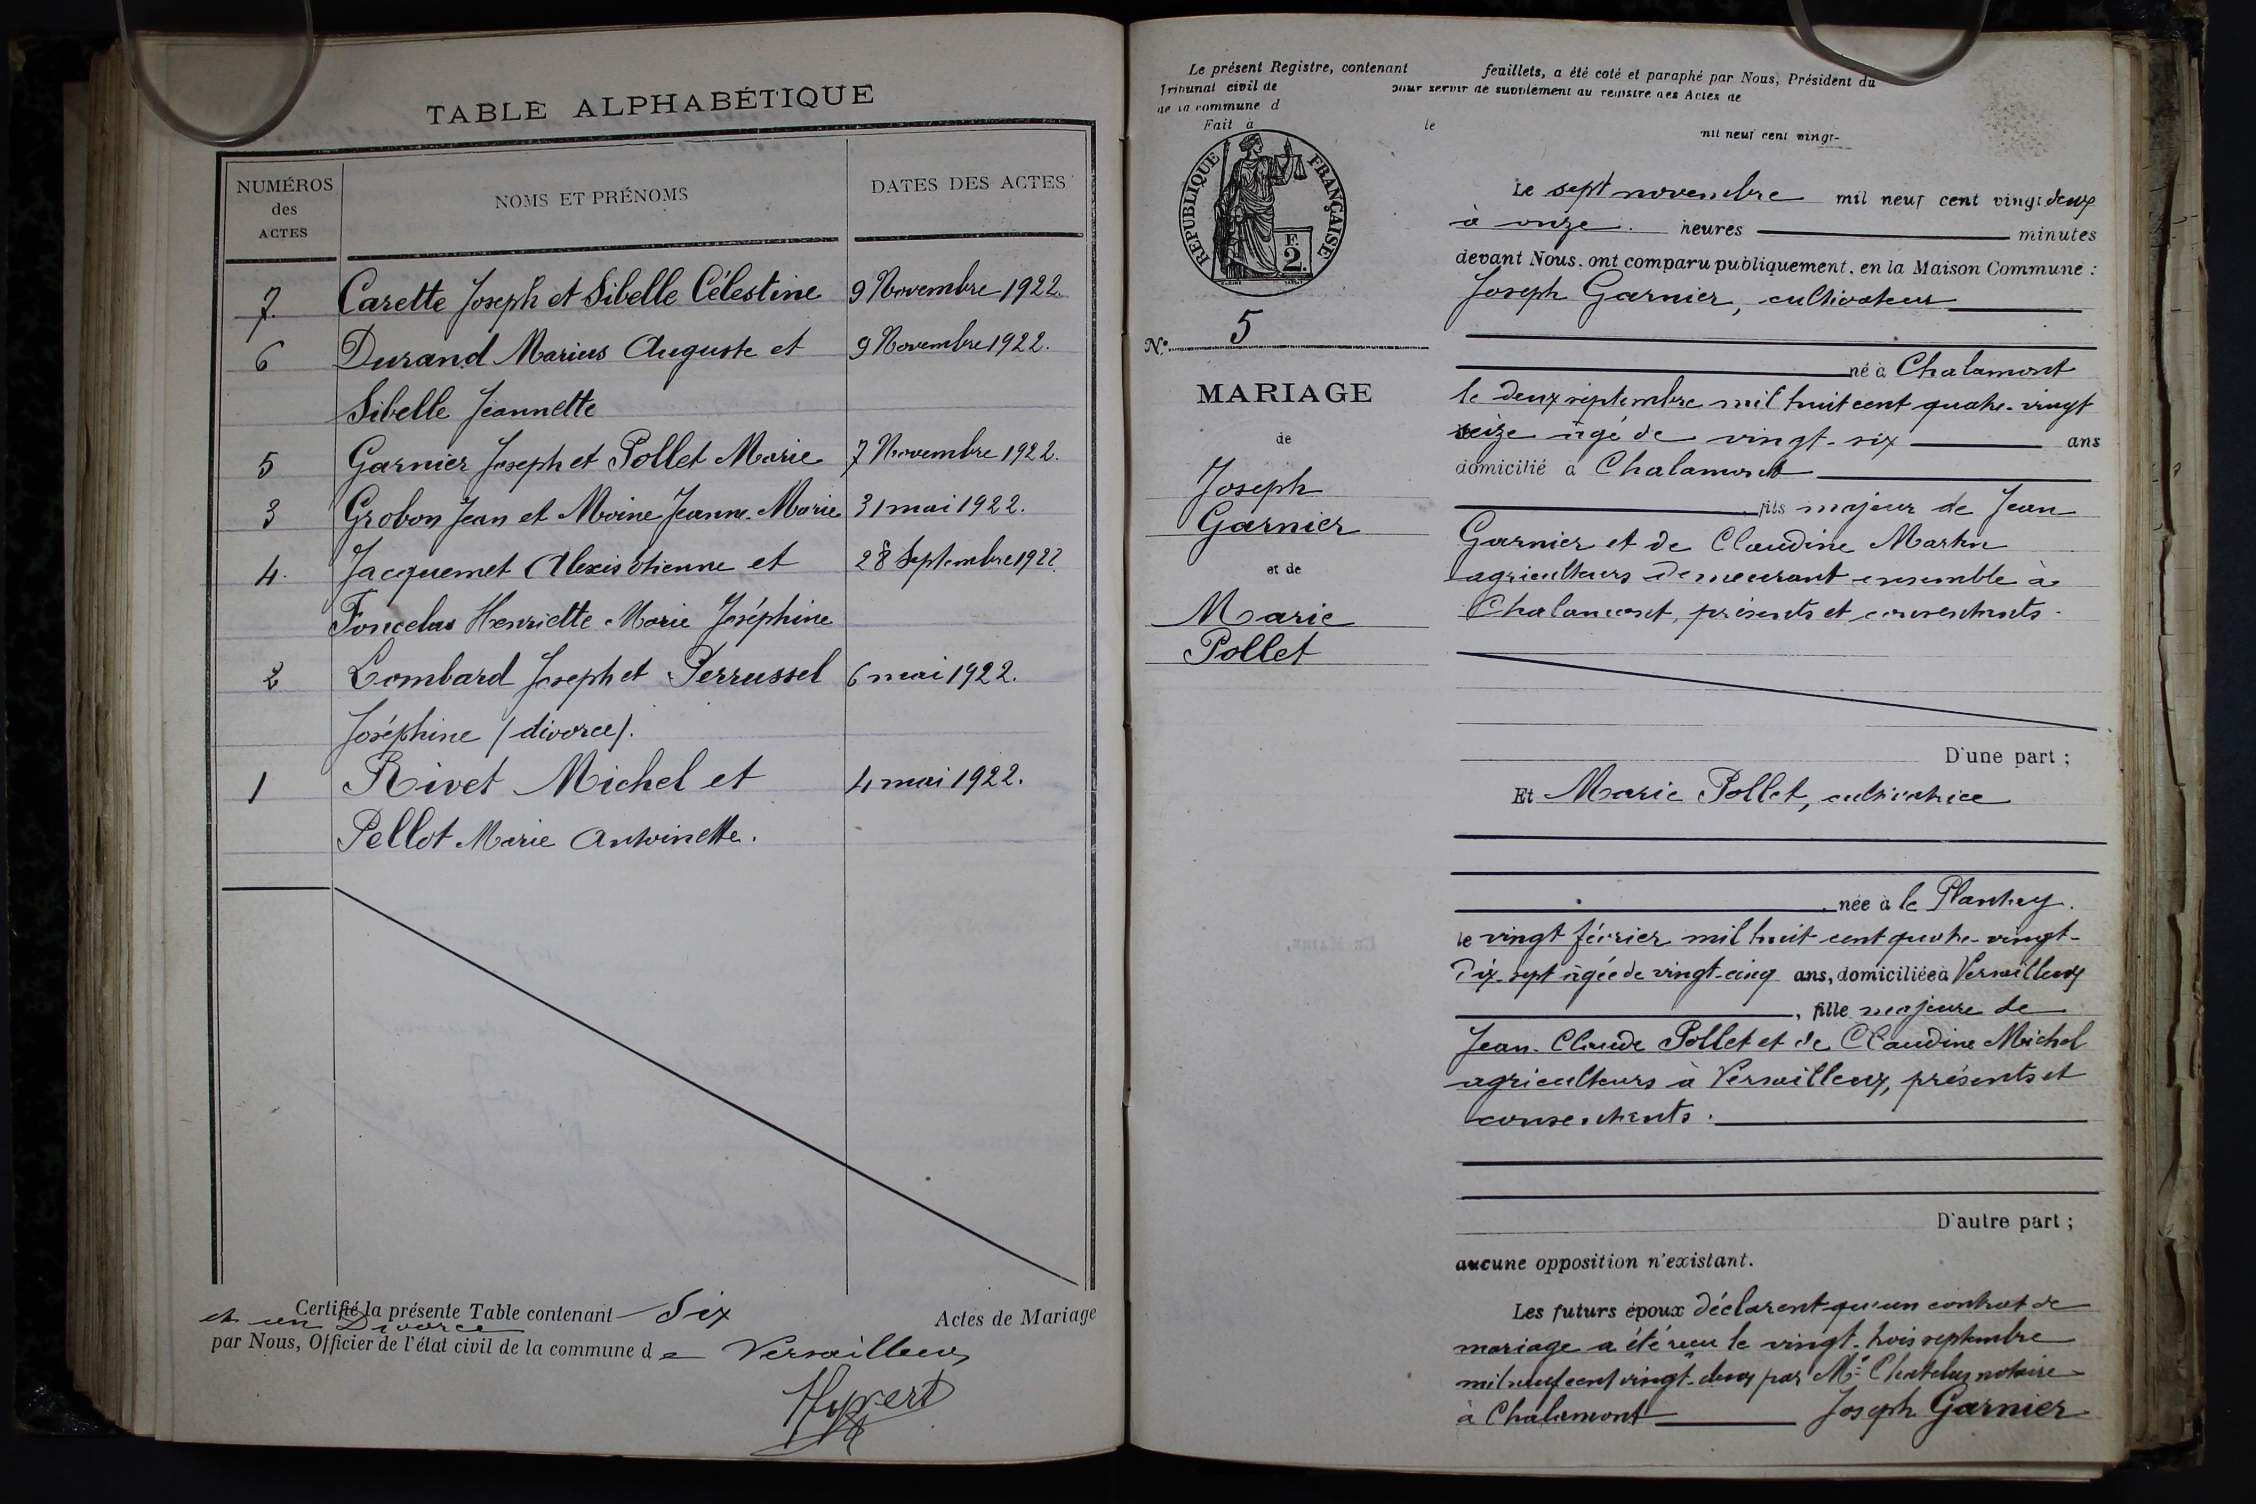 TABLE ALPHABÉTIQUE
NUMÉROS
des
ACTES
NOMS ET PRÉNOMS
DATES DES ACTES
7. Carette Joseph et Sibelle Célestine 9 Novembre 1922.
6 Durand Marius Auguste et 9 Novembre 1922.
Sibelle Jeannette
5 Garnier Joseph et Pollet Marie 7 Novembre 1922.
3 Grobon Jean et Moine Jeanne-Marie 31 mai 1922.
4. Jacquemet Alexis Etienne et 28 Septembre 1922.
Foncelas Henriette Marie Joséphine
2 Lombard Joseph et Perrussel 6 mai 1922.
Joséphine (divorce).
1 Rivet Michel et 4 mai 1922.
Pellot Marie Antoinette.
Certifié la présente Table contenant Six Actes de Mariage
et un Divorce
par Nous, Officier de l'état civil de la commune de Versailleux
Hyvert
Le présent Registre, contenant feuillets, a été coté et paraphé par Nous, Président du
Tribunal civil de pour servir de supplément au registre des Actes de
de la commune d
Fait à le mil neuf cent vingt-
RÉPUBLIQUE FRANÇAISE
F.
2.
N° 5
MARIAGE
de
Joseph
Garnier
et de
Marie
Pollet
Le sept novembre mil neuf cent vingt deux
à onze heures minutes
devant Nous, ont comparu publiquement, en la Maison Commune :
Joseph Garnier, cultivateur
né à Chalamont
le deux septembre mil huit cent quatre-vingt
seize âgé de vingt-six ans
domicilié à Chalamont
, fils majeur de Jean
Garnier et de Claudine Martin
agriculteurs demeurant ensemble à
Chalamont, présents et consentants.
D'une part ;
Et Marie Pollet, cultivatrice
née à le Plantay.
le vingt février mil huit cent quatre-vingt-
dix-sept âgée de vingt-cinq ans, domiciliée à Versailleux
, fille majeure de
Jean-Claude Pollet et de Claudine Michel
agriculteurs à Versailleux, présents et
consentants.
D'autre part ;
aucune opposition n'existant.
Les futurs époux déclarent qu'un contrat de
mariage a été reçu le vingt-trois septembre
mil neuf cent vingt-deux par Me Chatelus notaire
à Chalamont Joseph Garnier